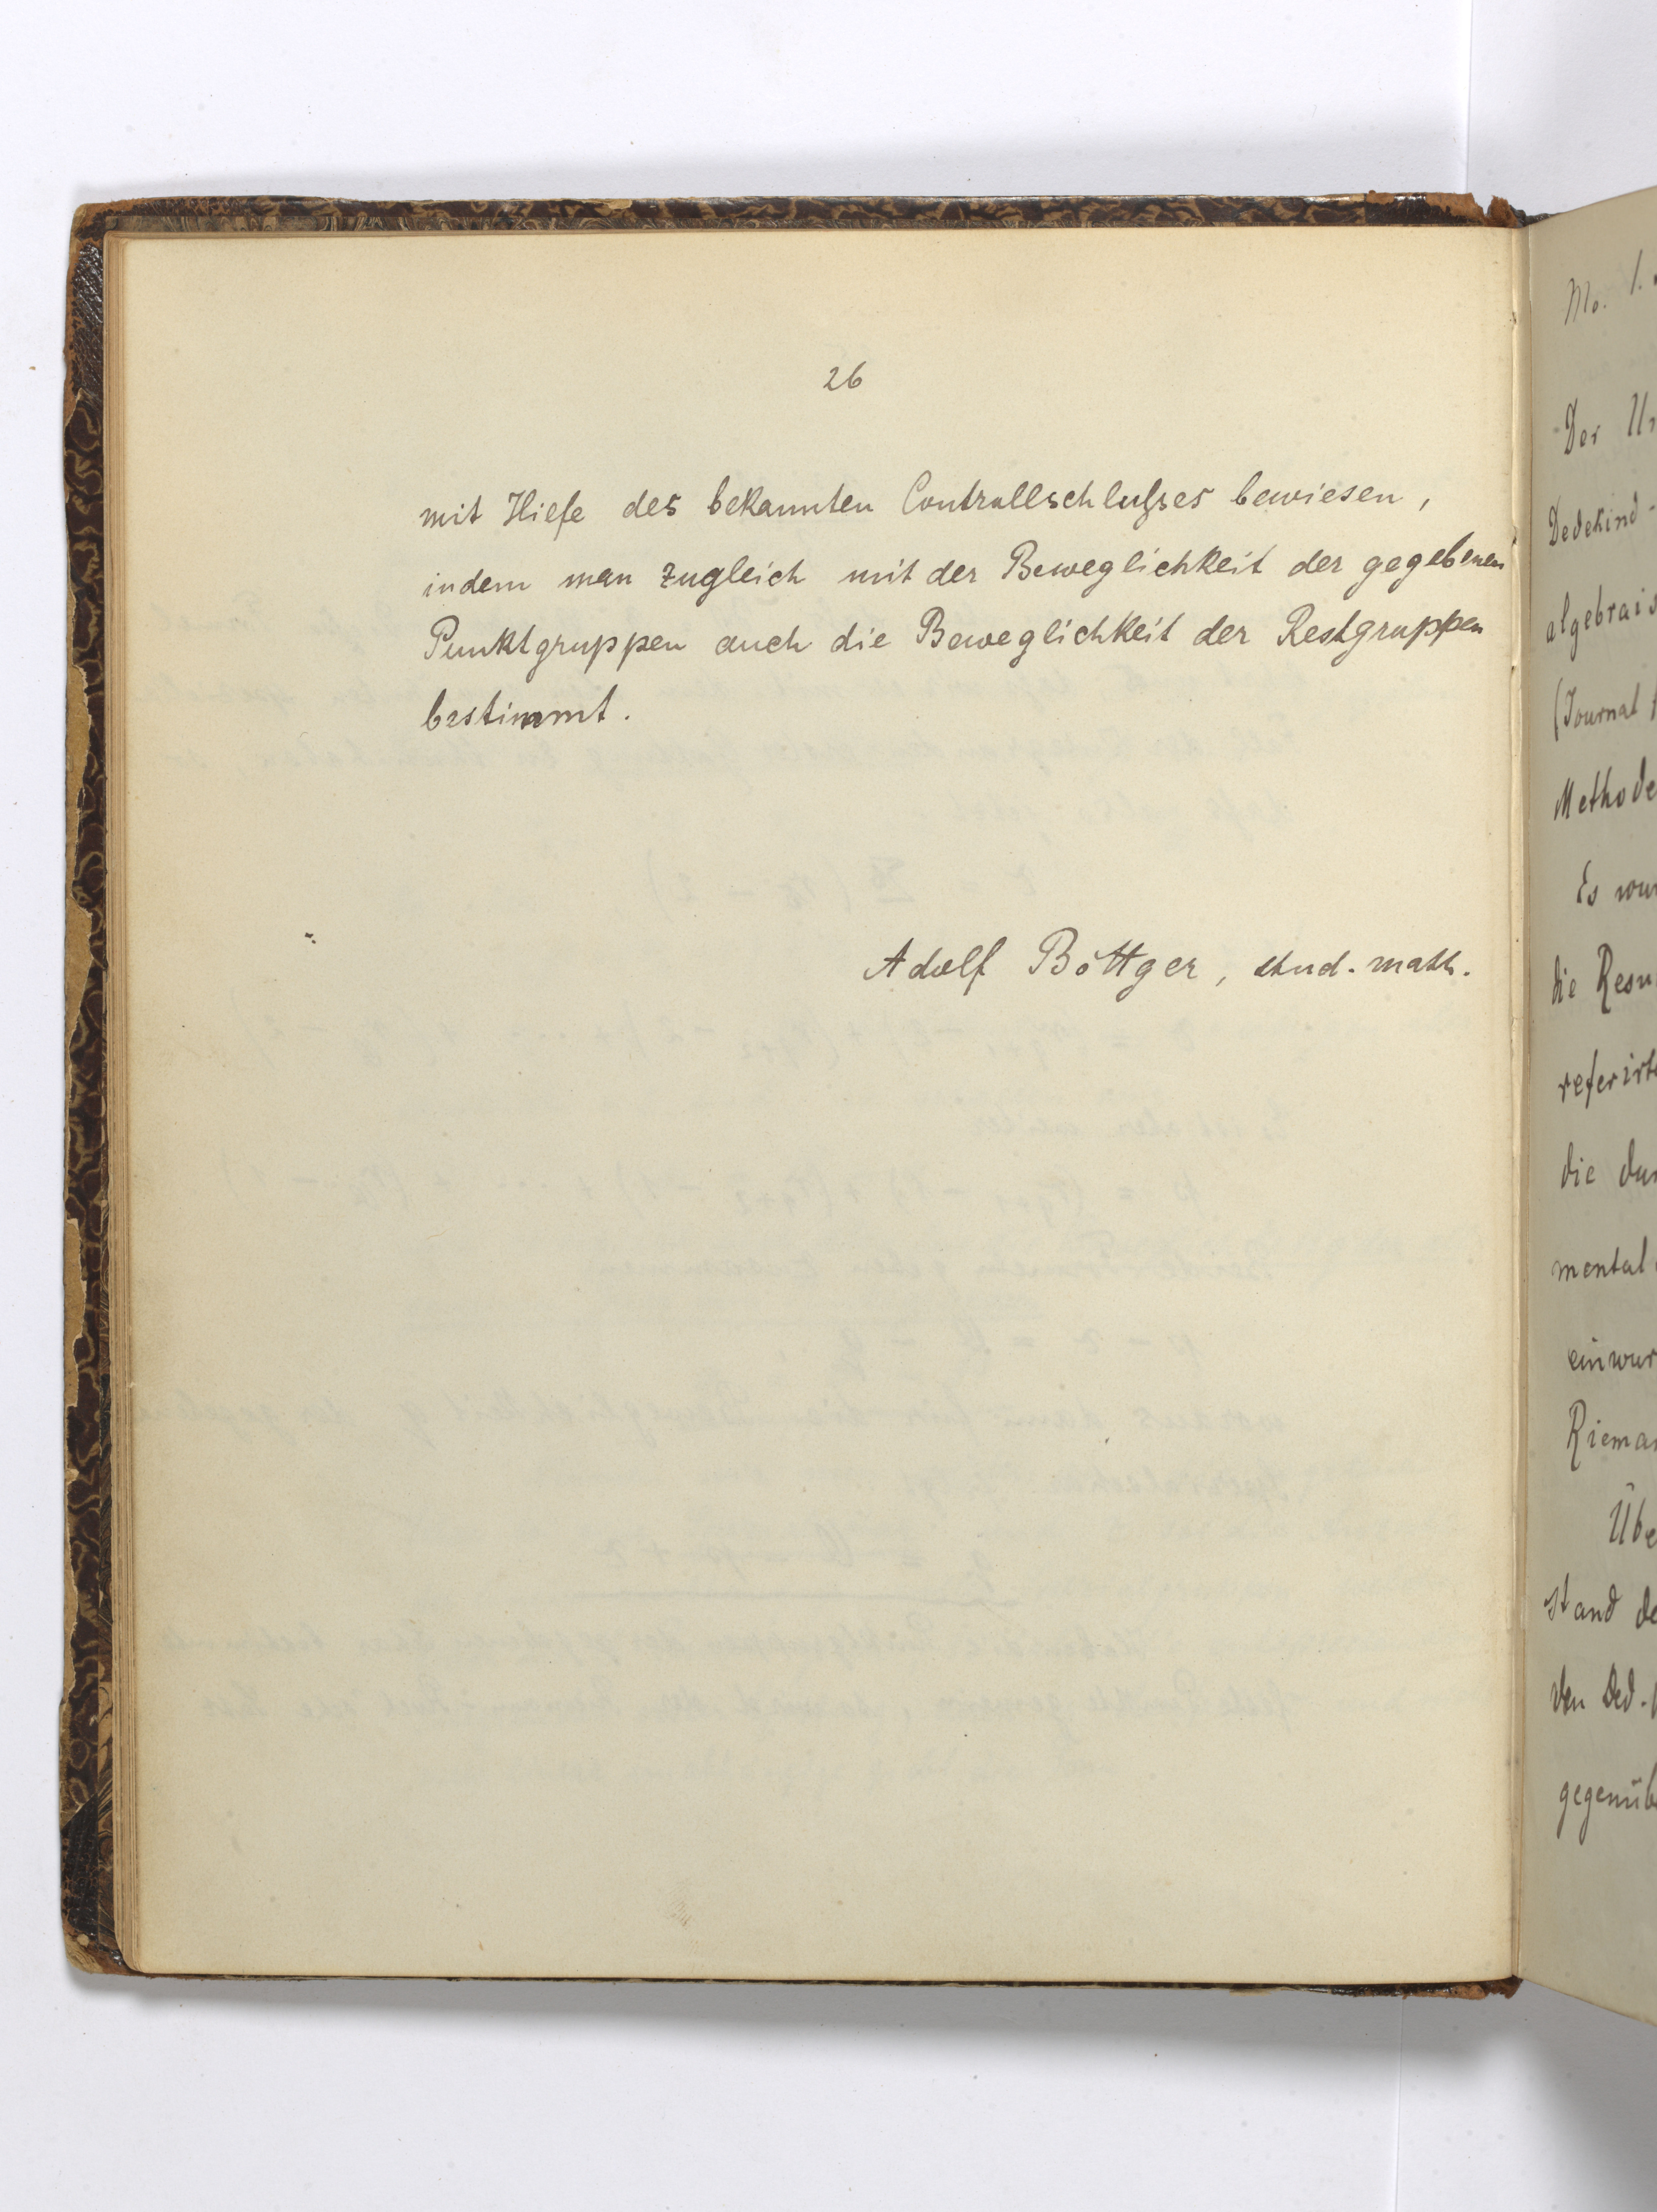 26
mit Hiefe des bekannten Controllschlußes bewiesen,
indem man zugleich mit der Beweglichkeit der gegebenen
Punktgruppen auch die Beweglichkeit der Restgruppen
bestimmt.
Adolf Böttger, stud. math.
Mo. 1.
Der
Dedekind-
algebrais
(Journal f
Methode
Es wur
die Resu
referirt
die dur
mental
einwur
Rieman
Übe
stand de
den Ded.
gegenüb